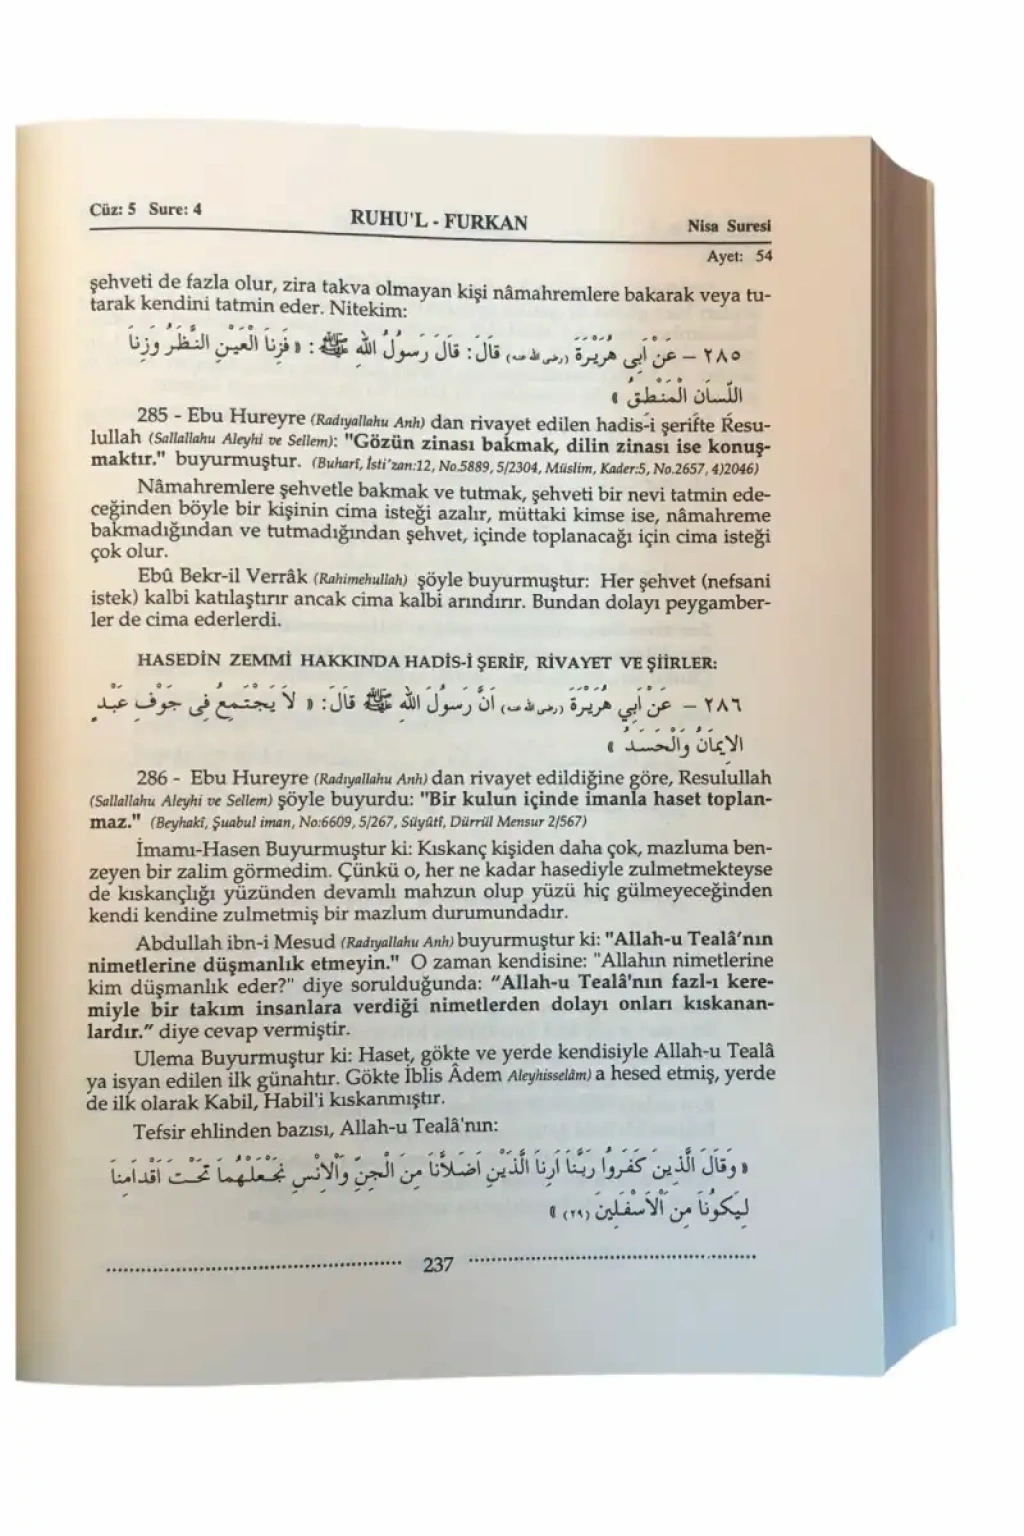 Cüz: 5 Sure: 4
RUHU'L - FURKAN
Nisa Suresi
Ayet: 54
şehveti de fazla olur, zira takva olmayan kişi nâmahremlere bakarak veya tu-
tarak kendini tatmin eder. Nitekim:
٢٨٥ – عَنْ أَبِى هُرَيْرَةَ (رضى الله عنه) قَالَ: قَالَ رَسُولُ اللهِ ﷺ: « فَزِنَا الْعَيْنِ النَّظَرُ وَزِنَا
اللِّسَانِ الْمَنْطِقُ »
285 - Ebu Hureyre (Radıyallahu Anh) dan rivayet edilen hadis-i şerifte Resu-
lullah (Sallallahu Aleyhi ve Sellem): "Gözün zinası bakmak, dilin zinası ise konuş-
maktır." buyurmuştur. (Buharî, İsti'zan:12, No.5889, 5/2304, Müslim, Kader:5, No.2657, 4)2046)
Nâmahremlere şehvetle bakmak ve tutmak, şehveti bir nevi tatmin ede-
ceğinden böyle bir kişinin cima isteği azalır, müttaki kimse ise, nâmahreme
bakmadığından ve tutmadığından şehvet, içinde toplanacağı için cima isteği
çok olur.
Ebû Bekr-il Verrâk (Rahimehullah) şöyle buyurmuştur: Her şehvet (nefsani
istek) kalbi katılaştırır ancak cima kalbi arındırır. Bundan dolayı peygamber-
ler de cima ederlerdi.
HASEDİN ZEMMİ HAKKINDA HADİS-İ ŞERİF, RİVAYET VE ŞİİRLER:
٢٨٦ – عَنْ أَبِي هُرَيْرَةَ (رضى الله عنه) أَنَّ رَسُولَ اللهِ ﷺ قَالَ: « لاَ يَجْتَمِعُ فِى جَوْفِ عَبْدٍ
الاِيمَانُ وَالْحَسَدُ »
286 - Ebu Hureyre (Radıyallahu Anh) dan rivayet edildiğine göre, Resulullah
(Sallallahu Aleyhi ve Sellem) şöyle buyurdu: "Bir kulun içinde imanla haset toplan-
maz." (Beyhakî, Şuabul iman, No:6609, 5/267, Süyûtî, Dürrül Mensur 2/567)
İmamı-Hasen Buyurmuştur ki: Kıskanç kişiden daha çok, mazluma ben-
zeyen bir zalim görmedim. Çünkü o, her ne kadar hasediyle zulmetmekteyse
de kıskançlığı yüzünden devamlı mahzun olup yüzü hiç gülmeyeceğinden
kendi kendine zulmetmiş bir mazlum durumundadır.
Abdullah ibn-i Mesud (Radıyallahu Anh) buyurmuştur ki: "Allah-u Tealâ'nın
nimetlerine düşmanlık etmeyin." O zaman kendisine: "Allahın nimetlerine
kim düşmanlık eder?" diye sorulduğunda: "Allah-u Tealâ'nın fazl-ı kere-
miyle bir takım insanlara verdiği nimetlerden dolayı onları kıskanan-
lardır." diye cevap vermiştir.
Ulema Buyurmuştur ki: Haset, gökte ve yerde kendisiyle Allah-u Tealâ
ya isyan edilen ilk günahtır. Gökte İblis Âdem Aleyhisselâm) a hesed etmiş, yerde
de ilk olarak Kabil, Habil'i kıskanmıştır.
Tefsir ehlinden bazısı, Allah-u Tealâ'nın:
« وَقَالَ الَّذِينَ كَفَرُوا رَبَّنَا أَرِنَا الَّذَيْنِ اَضَلاَّنَا مِنَ الْجِنِّ وَالْاِنْسِ نَجْعَلْهُمَا تَحْتَ اَقْدَامِنَا
لِيَكُونَا مِنَ الْاَسْفَلِينَ (٢٩) »
237